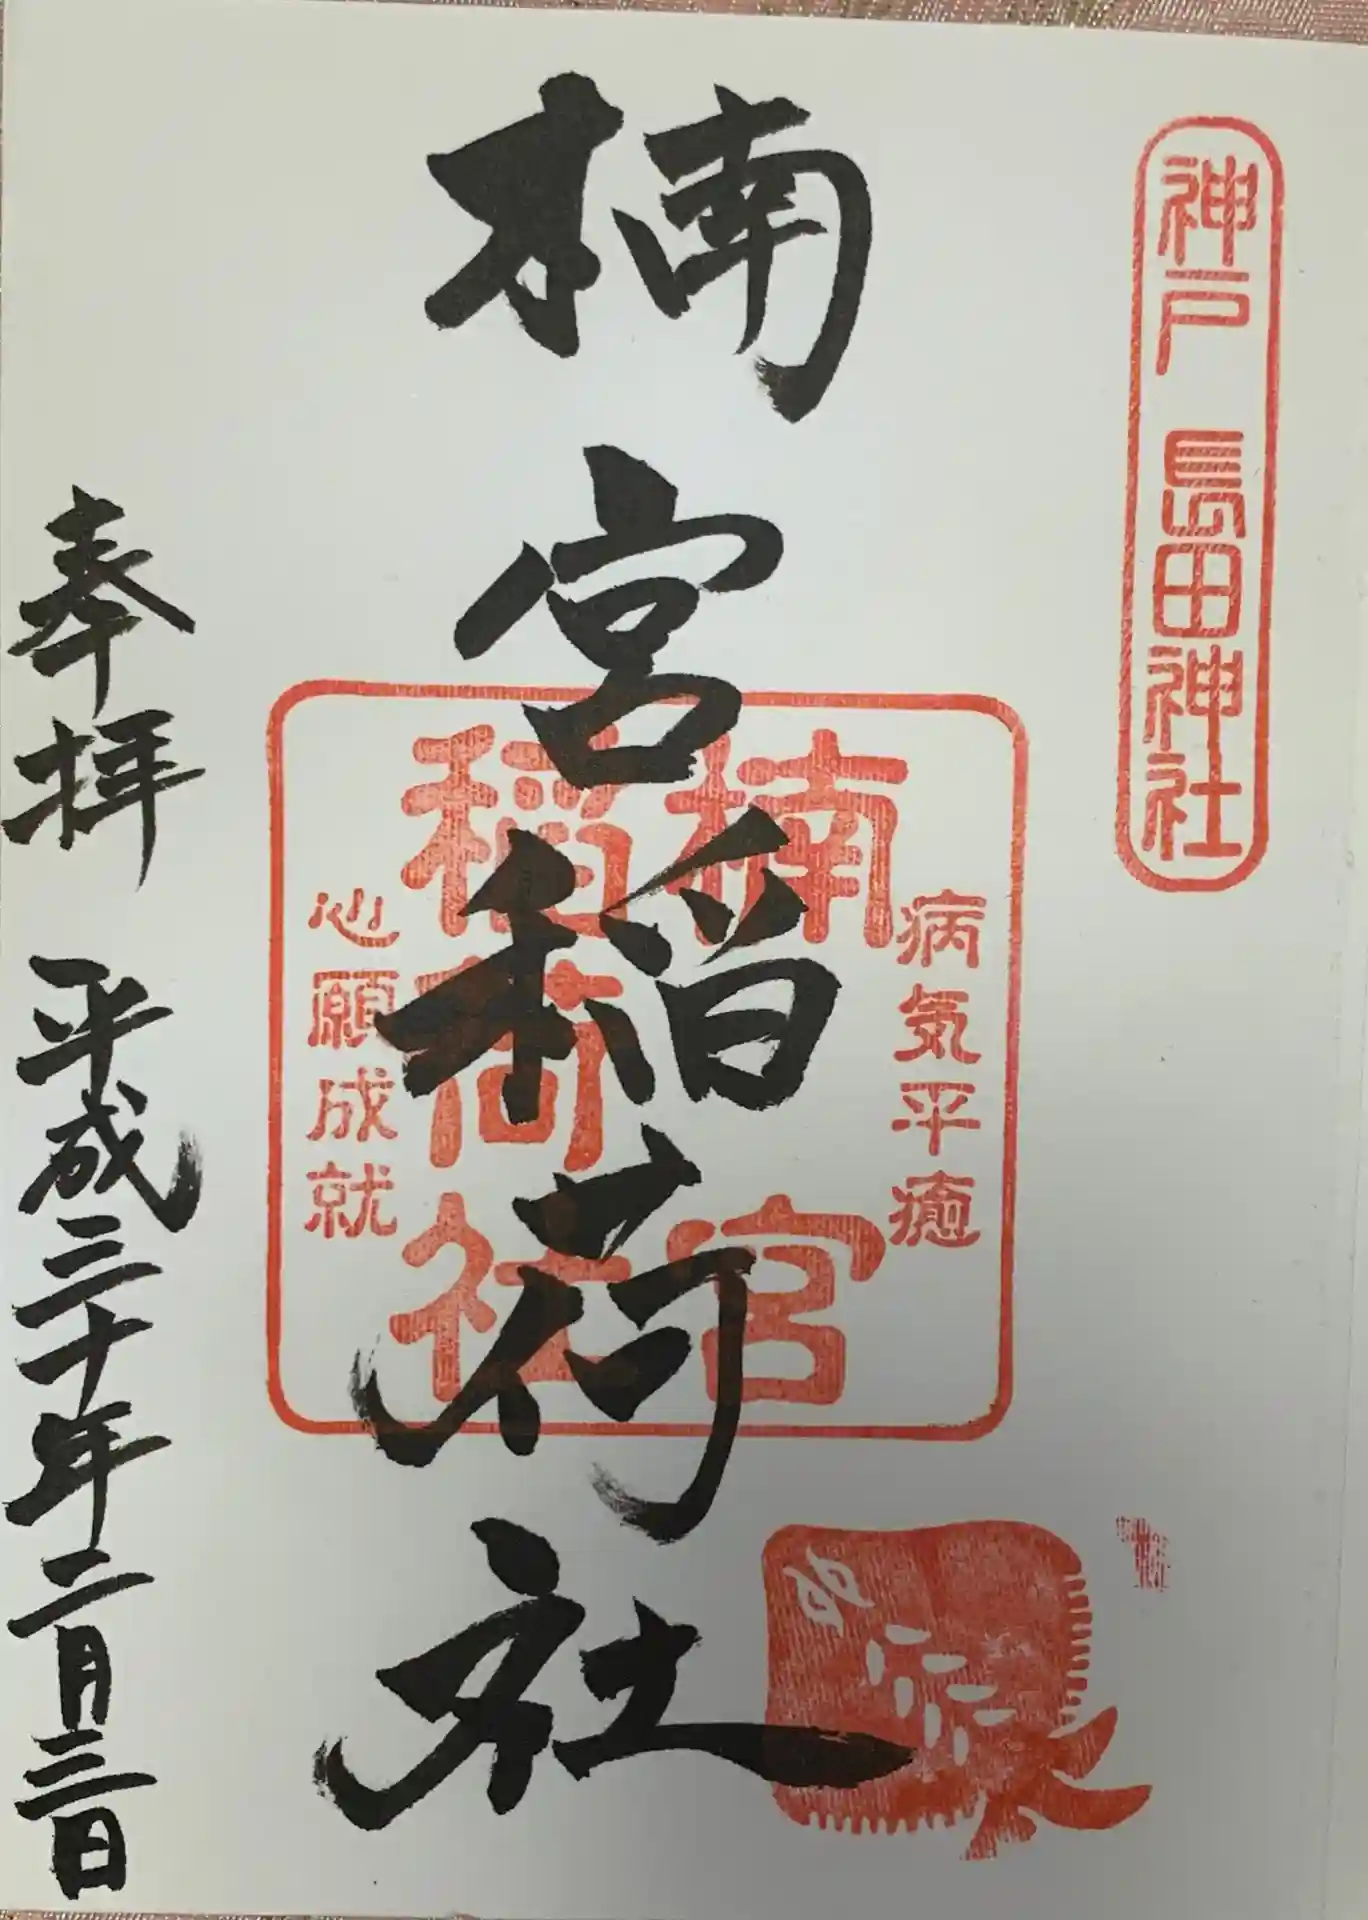 神戸 長田神社
楠宮稲荷社
病気平癒
楠宮
稲荷社
心願成就
奉拝 平成三十年二月三日